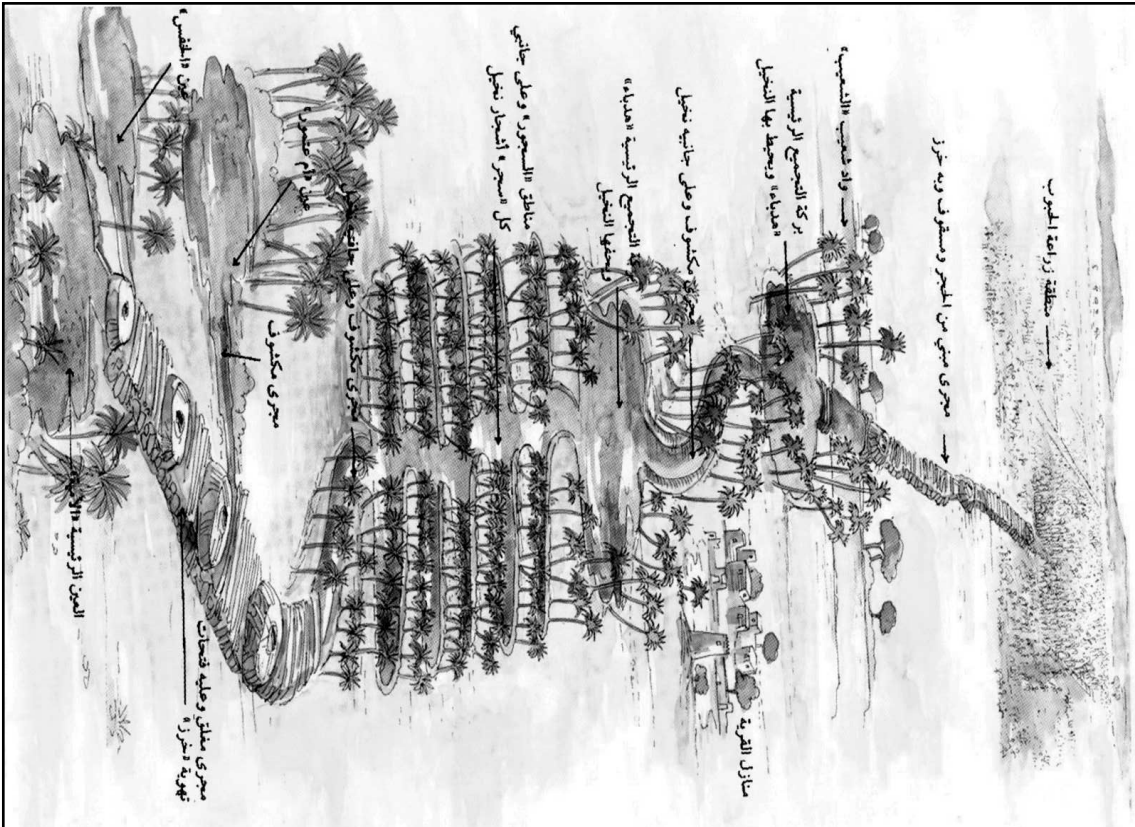 منطقة زراعة الحبوب
مجرى مبني من الحجر ومسقوف وبه خرز
واد شعيب «الشعيب»
بركة التجميع الرئيسية
«هدباء» ويحيط بها النخيل
مجرى مكشوف وعلى جانبيه نخيل
التجميع الرئيسية «هدباء»
ويحفها النخيل
مناطق «السجور» وعلى جانبي
كل «سجر» أشجار نخيل
منازل القرية
مجرى مكشوف وعلى
مجرى مكشوف
عين «أم
عين «الخفس»
العين الرئيسية
مجرى مغلق وعليه فتحات
تهوية «خرز»